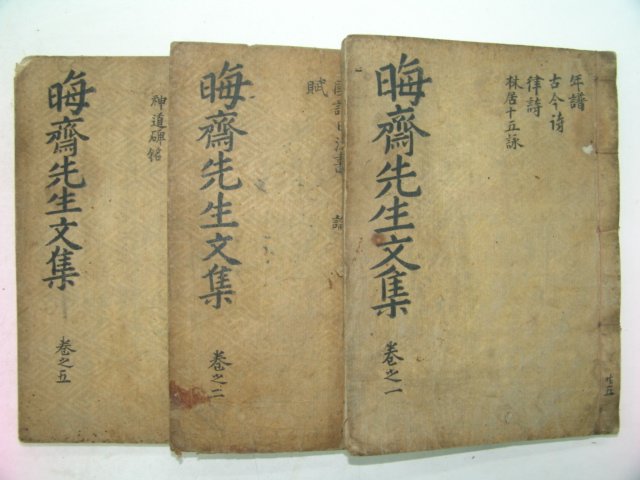 年譜
古今詩
律詩
林居十五詠
晦齋先生文集
卷之一
共五
賦
晦齋先生文集
卷之二
神道碑銘
晦齋先生文集
卷之五